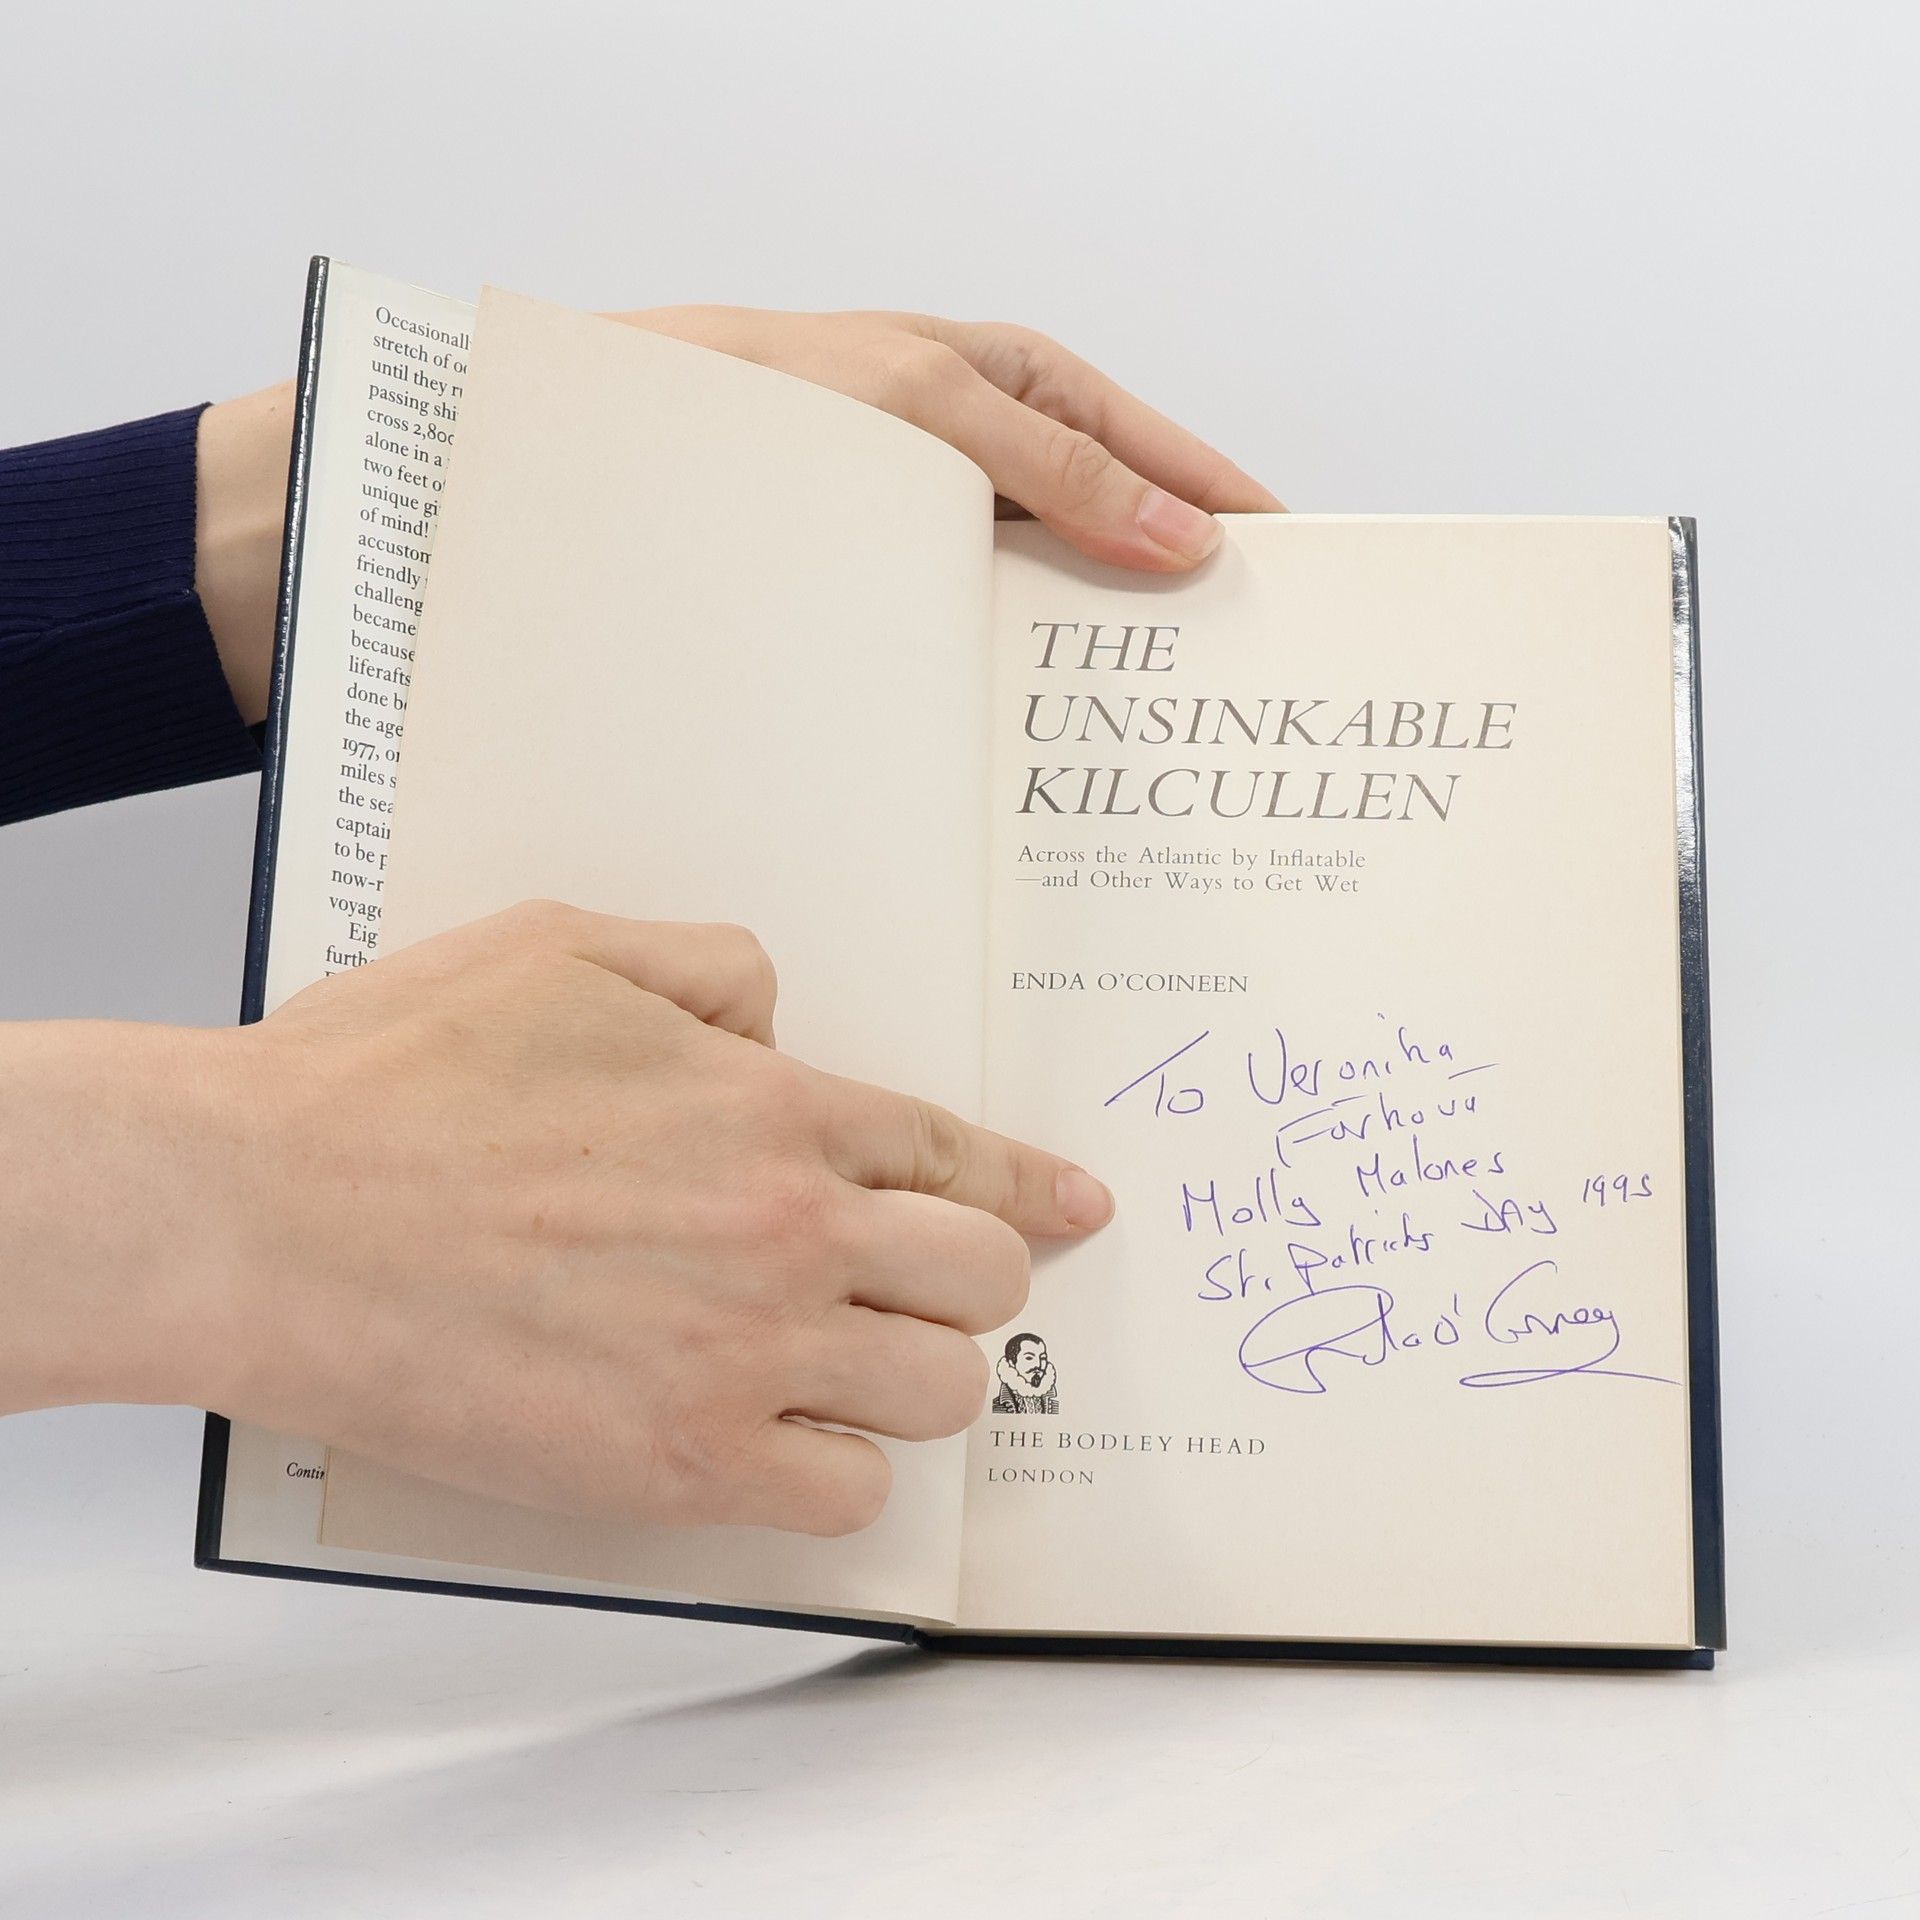 Occasionall
stretch of oc
until they ru
passing shi
cross 2,800
alone in a
two feet o
unique gi
of mind!
accustom
friendly
challeng
became
because
liferafts
done be
the age
1977, on
miles s
the sea
captain
to be p
now-r
voyage
Eig
furthe
Contin
THE
UNSINKABLE
KILCULLEN
Across the Atlantic by Inflatable
—and Other Ways to Get Wet
ENDA O'COINEEN
To Veronika
Farkova
Molly Malones
St. Patricks DAy 1995
THE BODLEY HEAD
LONDON